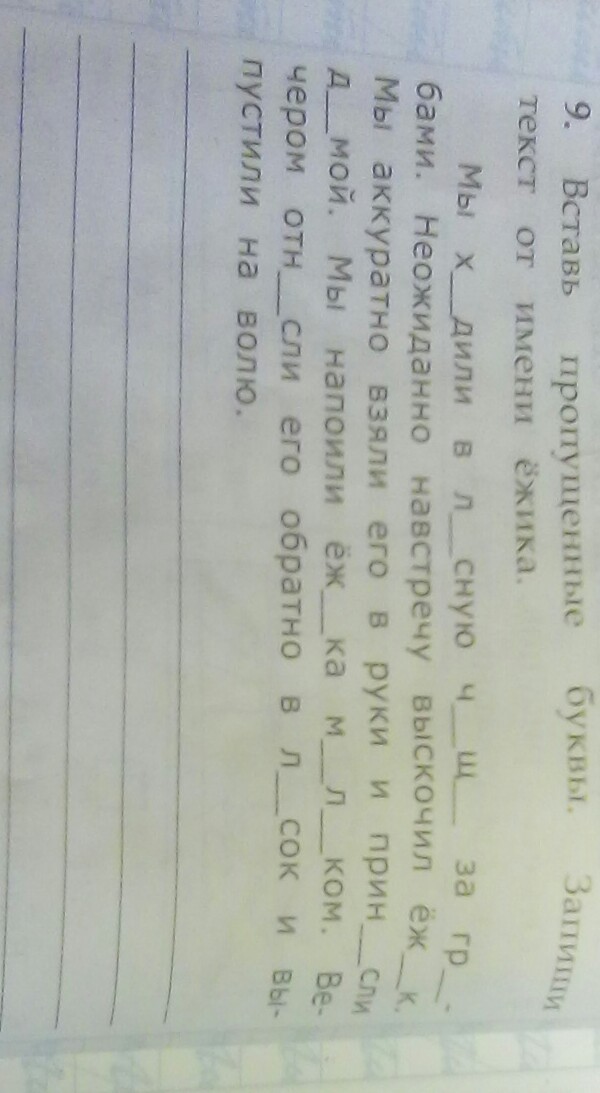 9. Вставь пропущенные буквы. Запиши
текст от имени ёжика.
Мы х__дили в л__сную ч__щ__ за гр__-
бами. Неожиданно навстречу выскочил ёж__к.
Мы аккуратно взяли его в руки и прин__сли
д__мой. Мы напоили ёж__ка м__л__ком. Ве-
чером отн__сли его обратно в л__сок и вы-
пустили на волю.